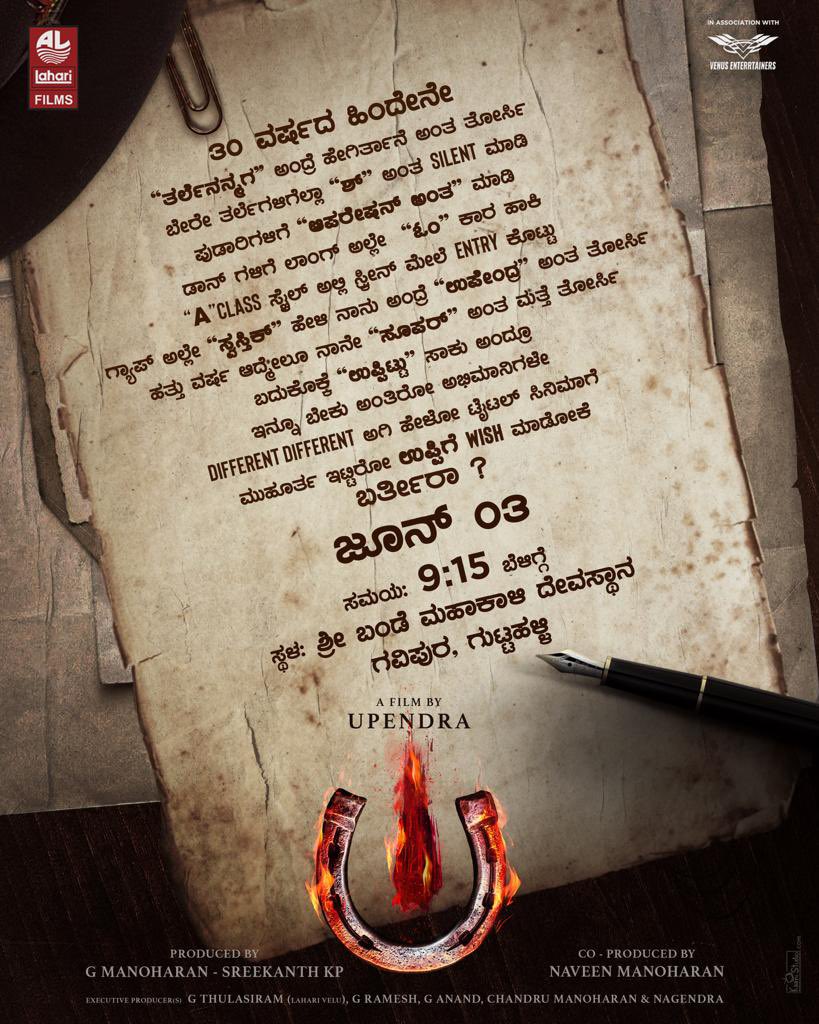 AL
Lahari
FILMS
IN ASSOCIATION WITH
VENUS ENTERRTAINERS
೩೦ ವರ್ಷದ ಹಿಂದೇನೇ
“ತರ್ಲೆನನ್ಮಗ” ಅಂದ್ರೆ ಹೇಗಿರ್ತಾನೆ ಅಂತ ತೋರ್ಸಿ
ಬೇರೇ ತರ್ಲೆಗಳಿಗೆಲ್ಲಾ “ಶ್” ಅಂತ SILENT ಮಾಡಿ
ಪುಡಾರಿಗಳಿಗೆ “ಆಪರೇಷನ್ ಅಂತ” ಮಾಡಿ
ಡಾನ್ ಗಳಿಗೆ ಲಾಂಗ್ ಅಲ್ಲೇ “ಓಂ” ಕಾರ ಹಾಕಿ
“A”CLASS ಸ್ಟೈಲ್ ಅಲ್ಲಿ ಸ್ಕ್ರೀನ್ ಮೇಲೆ ENTRY ಕೊಟ್ಟು
ಗ್ಯಾಪ್ ಅಲ್ಲೇ “ಸ್ವಸ್ತಿಕ್” ಹೇಳಿ ನಾನು ಅಂದ್ರೆ “ಉಪೇಂದ್ರ” ಅಂತ ತೋರ್ಸಿ
ಹತ್ತು ವರ್ಷ ಆದ್ಮೇಲೂ ನಾನೇ “ಸೂಪರ್” ಅಂತ ಮತ್ತೆ ತೋರ್ಸಿ
ಬದುಕೊಕ್ಕೆ “ಉಪ್ಪಿಟ್ಟು” ಸಾಕು ಅಂದ್ರೂ
ಇನ್ನೂ ಬೇಕು ಅಂತಿರೋ ಅಭಿಮಾನಿಗಳೇ
DIFFERENT DIFFERENT ಆಗಿ ಹೇಳೋ ಟೈಟಲ್ ಸಿನಿಮಾಗೆ
ಮುಹೂರ್ತ ಇಟ್ಟಿರೋ ಉಪ್ಪಿಗೆ WISH ಮಾಡೋಕೆ
ಬರ್ತೀರಾ ?
ಜೂನ್ ೦೩
ಸಮಯ: 9:15 ಬೆಳಿಗ್ಗೆ
ಸ್ಥಳ: ಶ್ರೀ ಬಂಡೆ ಮಹಾಕಾಳಿ ದೇವಸ್ಥಾನ
ಗವಿಪುರ, ಗುಟ್ಟಹಳ್ಳಿ
A FILM BY
UPENDRA
PRODUCED BY
G MANOHARAN - SREEKANTH KP
CO - PRODUCED BY
NAVEEN MANOHARAN
EXECUTIVE PRODUCER(S) G THULASIRAM (LAHARI VELU), G RAMESH, G ANAND, CHANDRU MANOHARAN & NAGENDRA